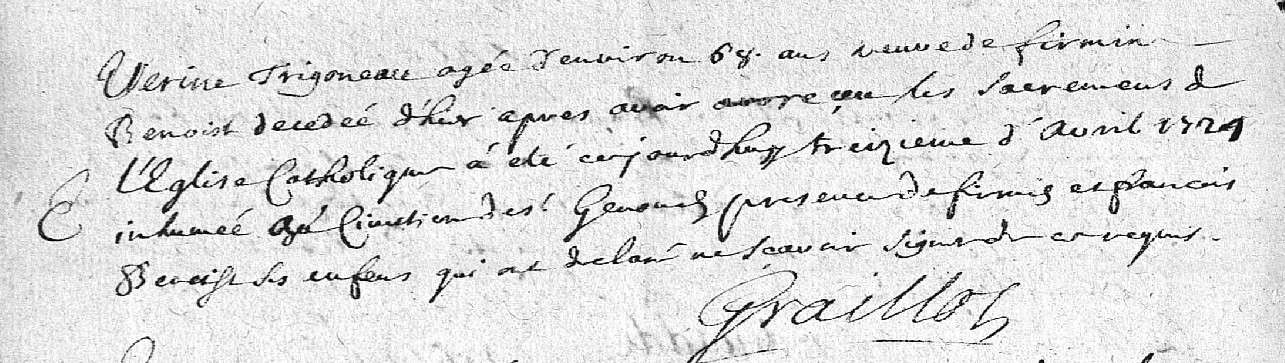 Uerine Trigoneau agée d'environ 68. ans veuve de firmin
Benoist decedeé d'hier apres avoir receu les sacremens d
L'Eglise Catholique á eté cejourdhuy treizieme d'Avril 1724
inhumeé au Cimetiere de st Genouch presence de firmin et francois
Benoist ses enfens qui ont declaré ne scavoir signer de ce requis.
Graillot